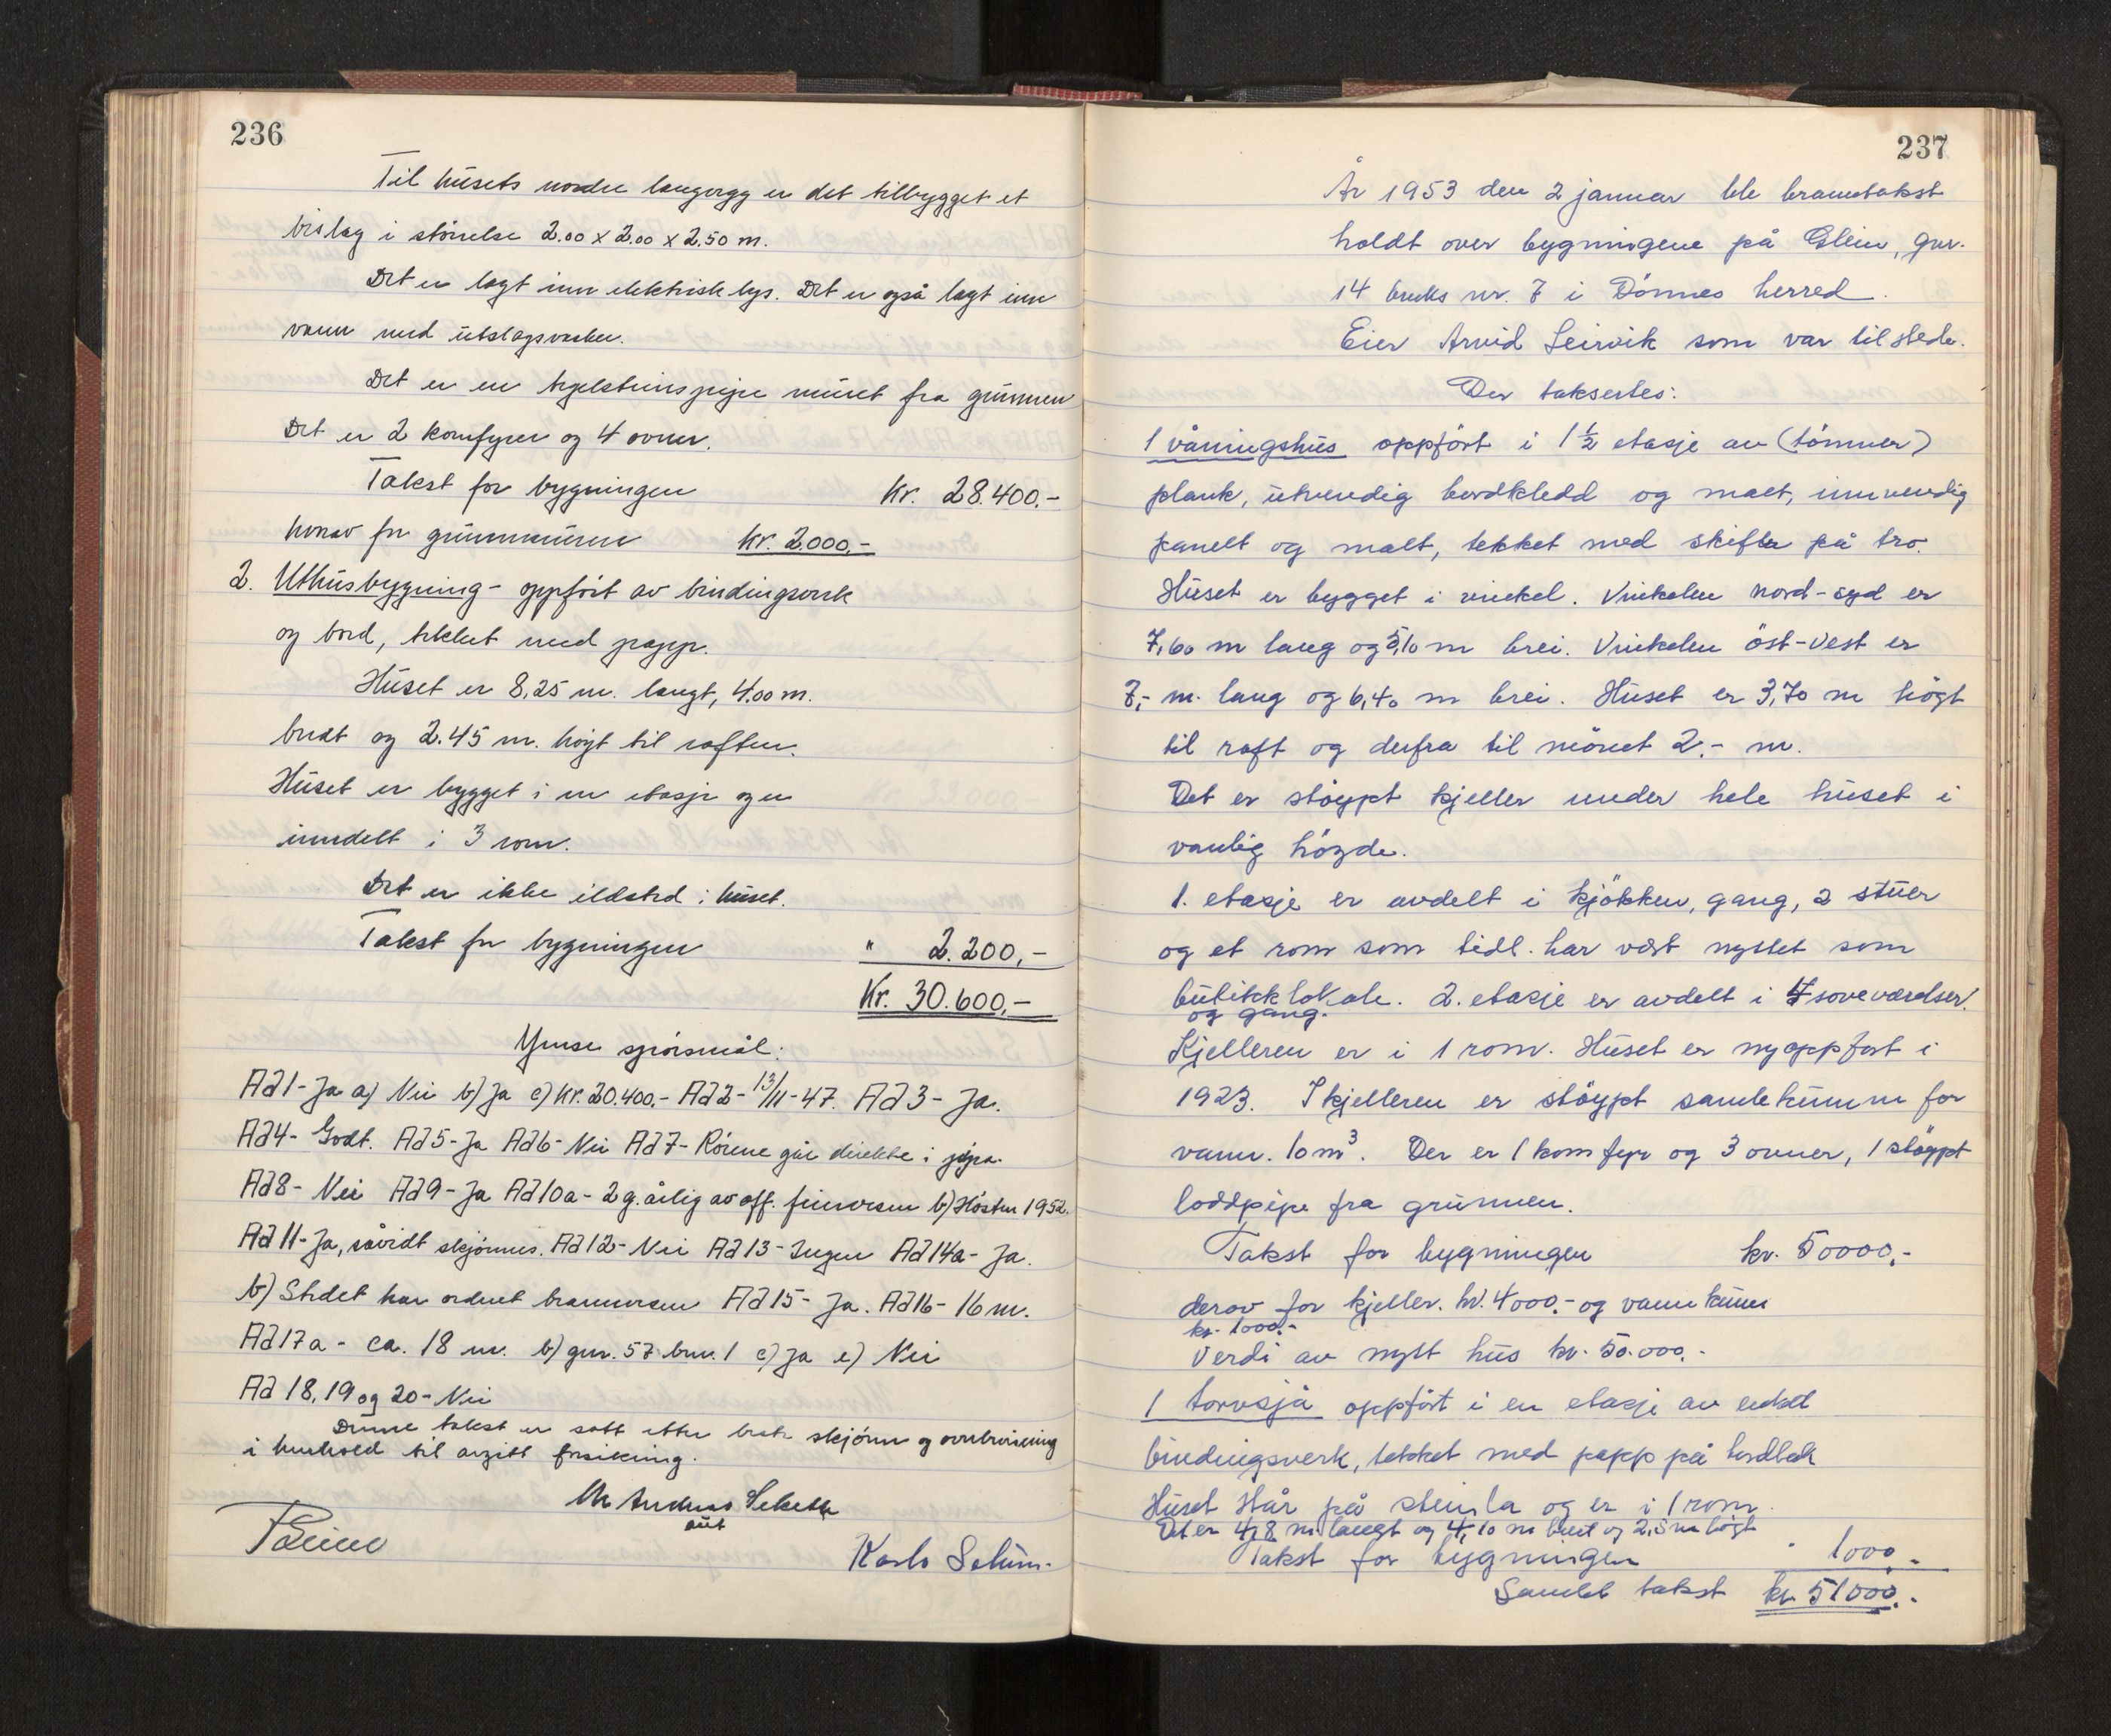 236
Til husets nordre langvegg er det tilbygget et
bislag i størrelse 2.00 x 2.00 x 2.50 m.
Det er lagt inn elektrisk lys. Det er også lagt inn
vann med utslagsvasker.
Det er en teglsteinspipe muret fra grunnen
Det er 2 komfyrer og 4 ovner.
Takst for bygningen Kr. 28.400.-
hvorav for grunnmuren Kr. 2.000.-
2. Uthusbygning - oppført av bindingsverk
og bord, tekket med papp.
Huset er 8,25 m. langt, 4.00 m.
bredt og 2.45 m. høyt til raften.
Huset er bygget i en etasje og er
inndelt i 3 rom.
Det er ikke ildsted i huset.
Takst for bygningen " 2.200,-
Kr. 30.600,-
Ymse spørsmål:
Ad 1 - Ja a) Nei b) Ja c) Kr. 20.400.- Ad 2 - 13/11 - 47. Ad 3 - Ja.
Ad 4 - Godt. Ad 5 - Ja Ad 6 - Nei Ad 7 - Rørene går direkte i pipa.
Ad 8 - Nei Ad 9 - Ja Ad 10a - 2 g. årlig av off. feiervesen b) Høsten 1952.
Ad 11 - Ja, såvidt skjønnes. Ad 12 - Nei Ad 13 - Ingen Ad 14a - Ja.
b) Stedet har ordnet brannvesen Ad 15 - Ja. Ad 16 - 16 m.
Ad 17 a - ca. 18 m. b) gnr. 57 bnr. 1 c) Ja e) Nei
Ad 18, 19 og 20 - Nei
Denne takst er satt etter beste skjønn og overbevisning
i henhold til avgitt forsikring.
Karlo
237
År 1953 den 2 januar ble branntakst
holdt over bygningene på Glein, gnr.
14 bruks nr. 7 i Dönnes herred.
Eier Arvid Leirvik som var tilstede.
Der taksertes:
1 våningshus oppfört i 1 1/2 etasje av (tömmer)
plank, utvendig bordkledd og malt, innvendig
panelt og malt, tekket med skifer på tro.
Huset er bygget i vinkel. Vinkelen nord-syd er
7,60 m lang og 5,10 m brei. Vinkelen öst-vest er
7,- m. lang og 6,40 m brei. Huset er 3,70 m högt
til raft og derfra til mönet 2,- m.
Det er stöypt kjeller under hele huset i
vanlig högde.
1. etasje er avdelt i kjökken, gang, 2 stuer
og et rom som tidl. har vært nyttet som
butikklokale. 2. etasje er avdelt i 4 soveværelser
og gang.
Kjelleren er i 1 rom. Huset er nyoppfört i
1923. I kjelleren er stöypt samlekumm for
vann. 10 m³. Der er 1 komfyr og 3 ovner, 1 stöypt
loddpipe fra grunnen.
Takst for bygningen kr. 50000.-
derav for kjeller. kr. 4000.- og vannkum
kr. 1000.-
Verdi av nytt hus kr. 50.000.-
1 torvsjå oppfört i en etasje av enkel
bindingsverk, tekket med papp på bordtak
Huset står på steinla og er i 1 rom.
Det er 4,8 m langt og 4,10 m breit og 2,5 m högt
Takst for bygningen " 1000.-
Samlet takst kr 51000.-